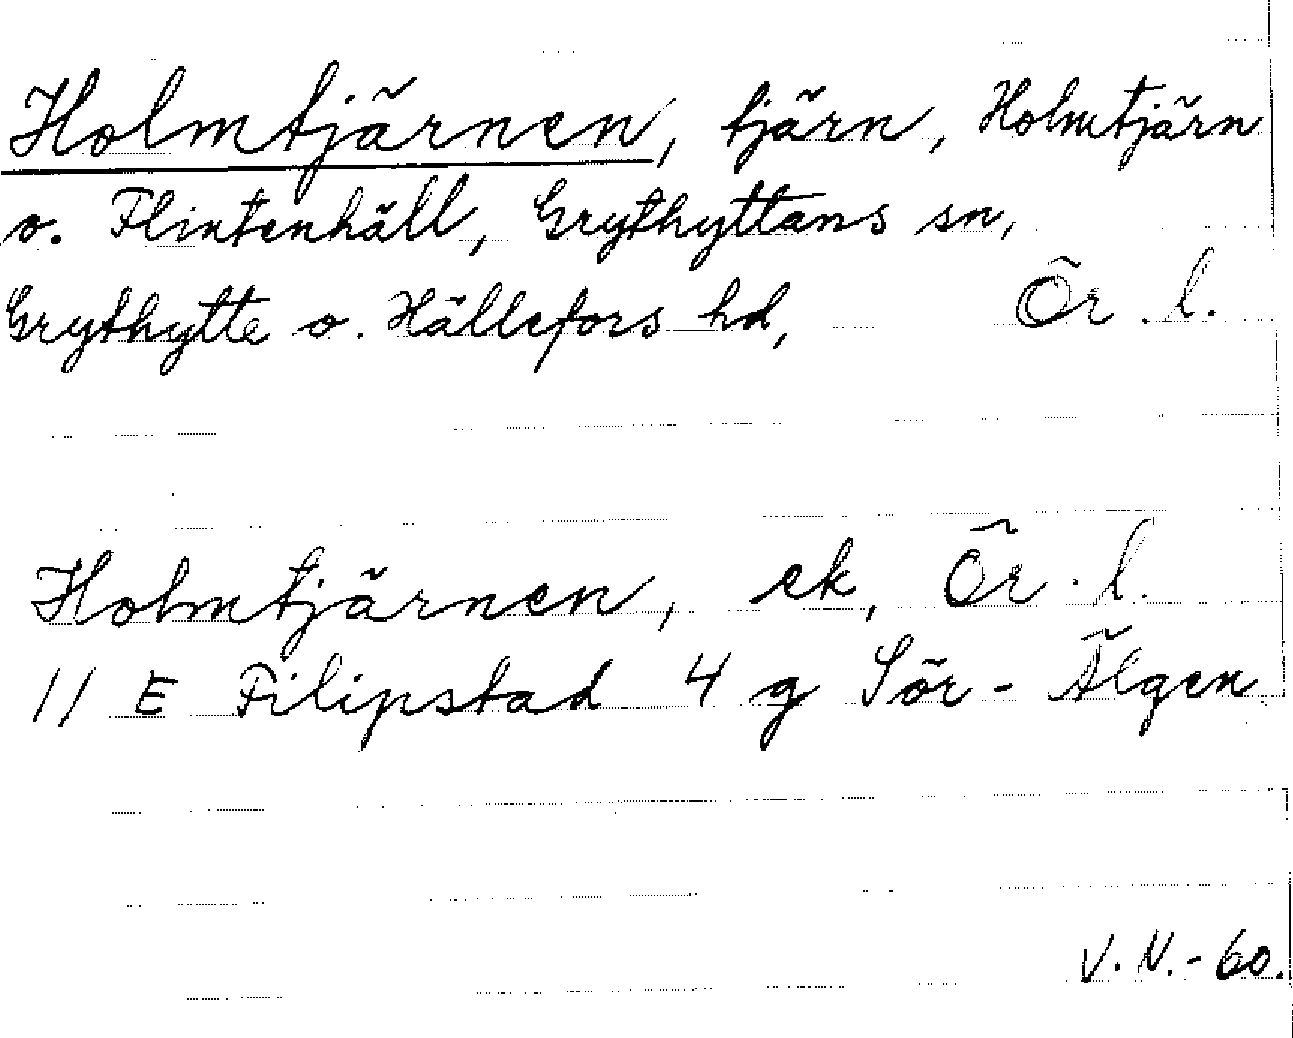 Holmtjärnen, tjärn, Holmtjärn
o. Flintenhäll, Grythyttans sn,
Grythytte o. Hällefors hd, Ör. l.
Holmtjärnen, ek, Ör. l.
11 E Filipstad 4 g Sör-Älgen
V. N.-60.